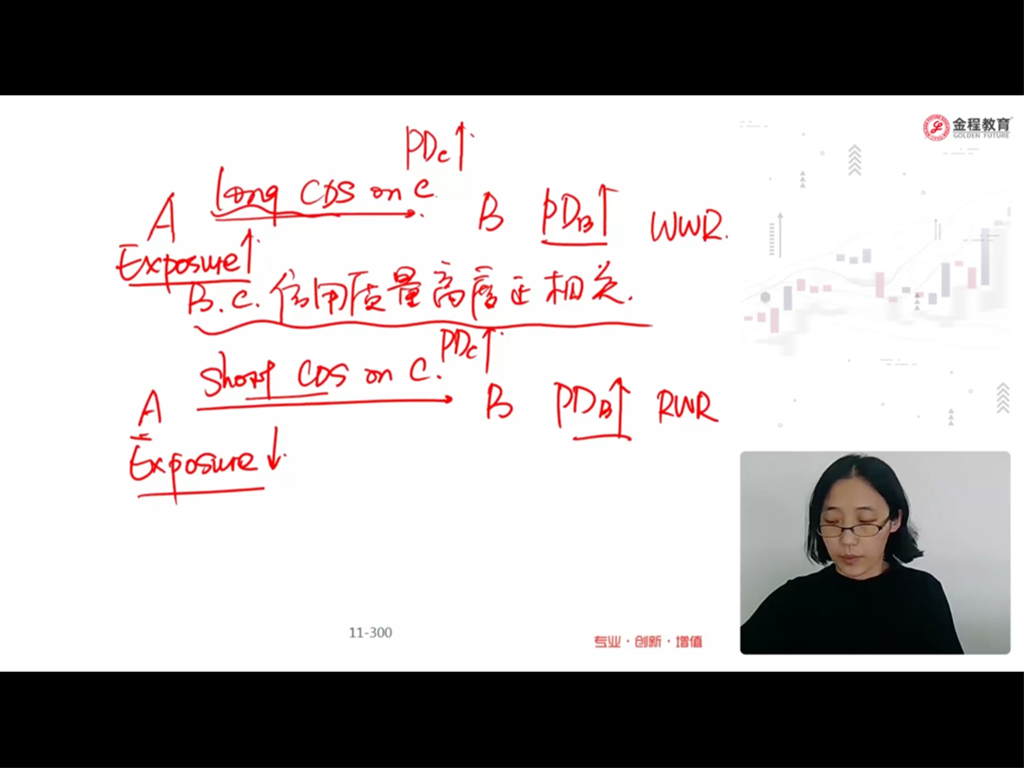 PDc↑
A long CDS on C. B PDB↑ WWR.
Exposure↑
B.C.信用质量高度正相关.
PDc↑
A short CDS on C. B PDB↑ RWR
Exposure↓
11-300
专业·创新·增值
金程教育
GOLDEN FUTURE